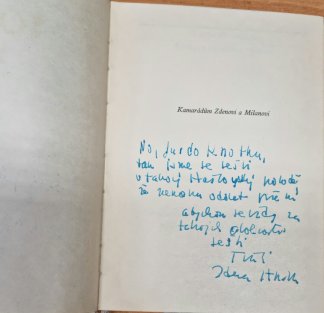 Kamarádům Zdenovi a Milanovi
No, Jardo
tak jsme se sešli
v takový pohodě
že nemohu odolat přání
abychom se vždy za
takových okolností
sešli
Tvůj
Zdena